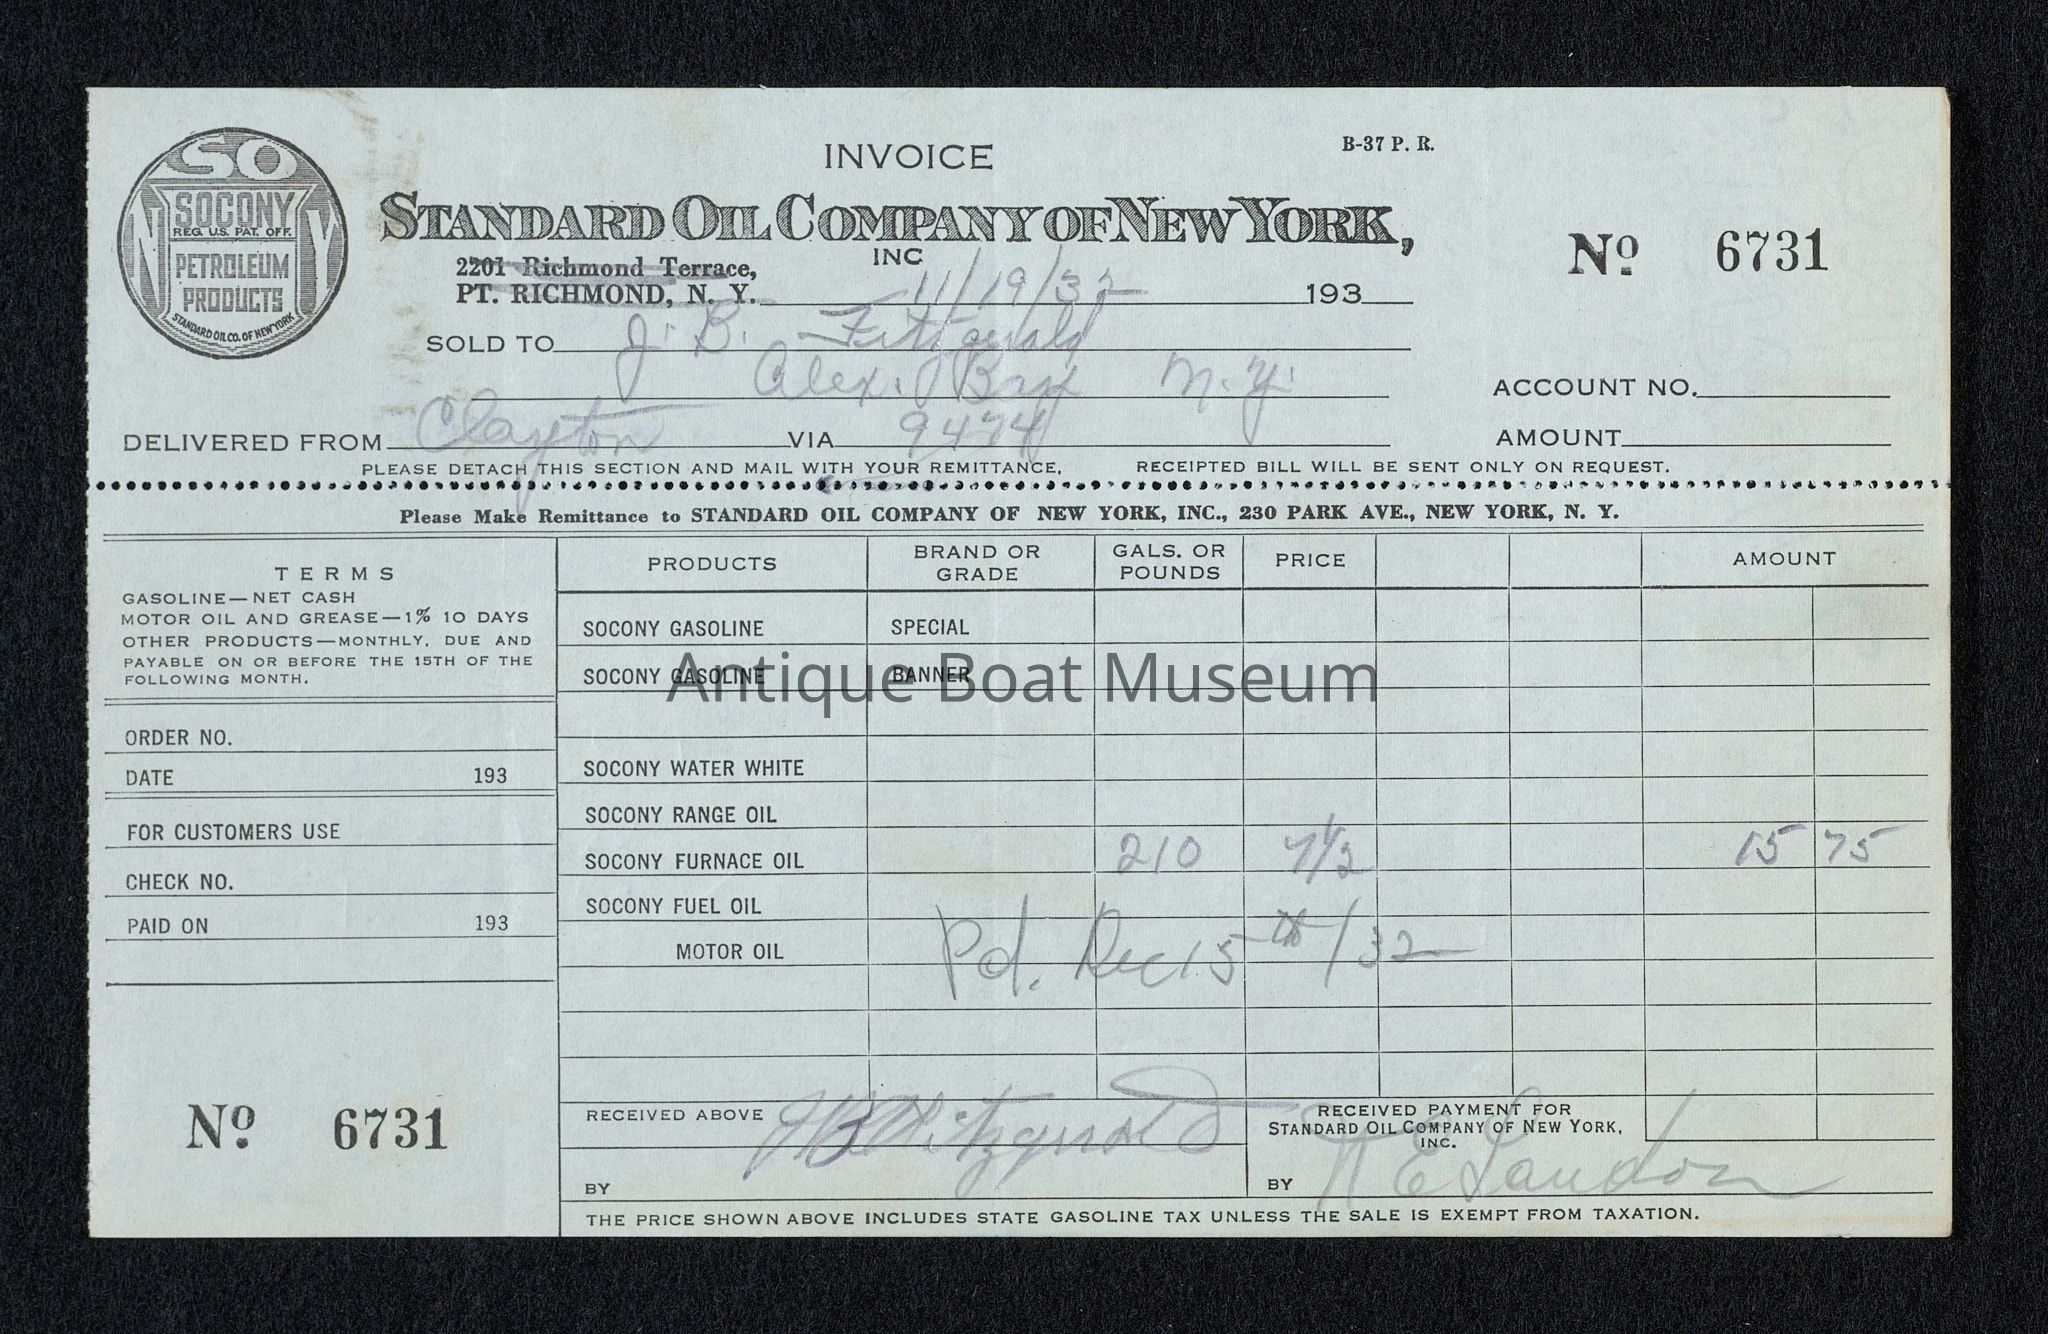 INVOICE
B-37 P. R.
SO
N Y
SOCONY
REG. U.S. PAT. OFF.
PETROLEUM
PRODUCTS
STANDARD OIL CO. OF NEW YORK
STANDARD OIL COMPANY OF NEW YORK,
INC
No 6731
2201 Richmond Terrace,
PT. RICHMOND, N. Y. 11/19/32 193
SOLD TO J. B. Fitzgerald
Alex. Bay N. Y.
ACCOUNT NO.
DELIVERED FROM Clayton VIA 9474
AMOUNT
PLEASE DETACH THIS SECTION AND MAIL WITH YOUR REMITTANCE. RECEIPTED BILL WILL BE SENT ONLY ON REQUEST.
Please Make Remittance to STANDARD OIL COMPANY OF NEW YORK, INC., 230 PARK AVE., NEW YORK, N. Y.
TERMS
GASOLINE—NET CASH
MOTOR OIL AND GREASE—1% 10 DAYS
OTHER PRODUCTS—MONTHLY, DUE AND
PAYABLE ON OR BEFORE THE 15TH OF THE
FOLLOWING MONTH.
ORDER NO.
DATE 193
FOR CUSTOMERS USE
CHECK NO.
PAID ON 193
No 6731
PRODUCTS BRAND OR GRADE GALS. OR POUNDS PRICE AMOUNT
SOCONY GASOLINE SPECIAL
SOCONY GASOLINE BANNER
Antique Boat Museum
SOCONY WATER WHITE
SOCONY RANGE OIL
SOCONY FURNACE OIL 210 7 1/2 15 75
SOCONY FUEL OIL
MOTOR OIL
Pd. Dec 15th/32
RECEIVED ABOVE J B Fitzgerald
BY
RECEIVED PAYMENT FOR
STANDARD OIL COMPANY OF NEW YORK,
INC.
BY E Landon
THE PRICE SHOWN ABOVE INCLUDES STATE GASOLINE TAX UNLESS THE SALE IS EXEMPT FROM TAXATION.